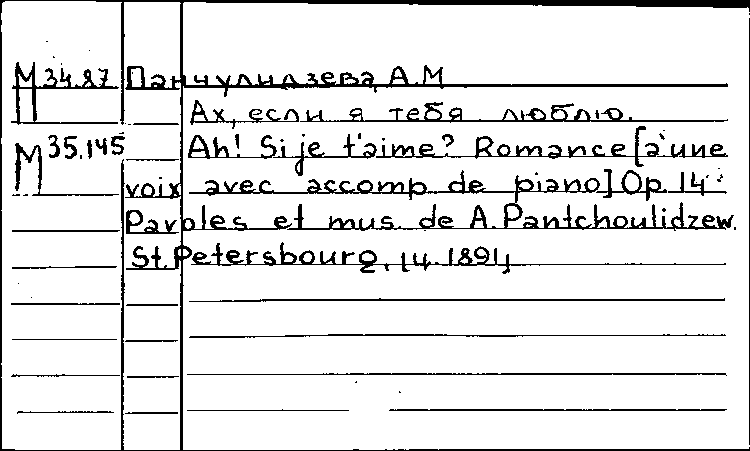 М 34.87 Панчулидзева, А.М
Ах, если я тебя люблю.
М 35.145 Ah! Si je t'aime? Romance [à une
voix avec accomp. de piano] Op. 14
Paroles et mus. de A. Pantchoulidzew.
St. Petersbourg,